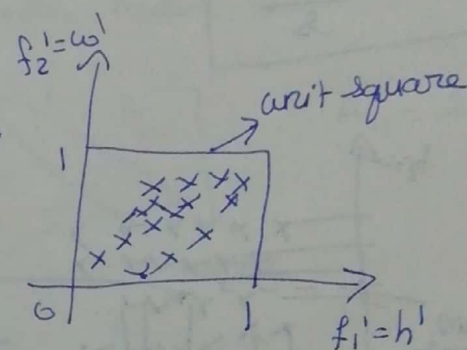 f₂' = ω'
unit square
1
0
1
f₁' = h'